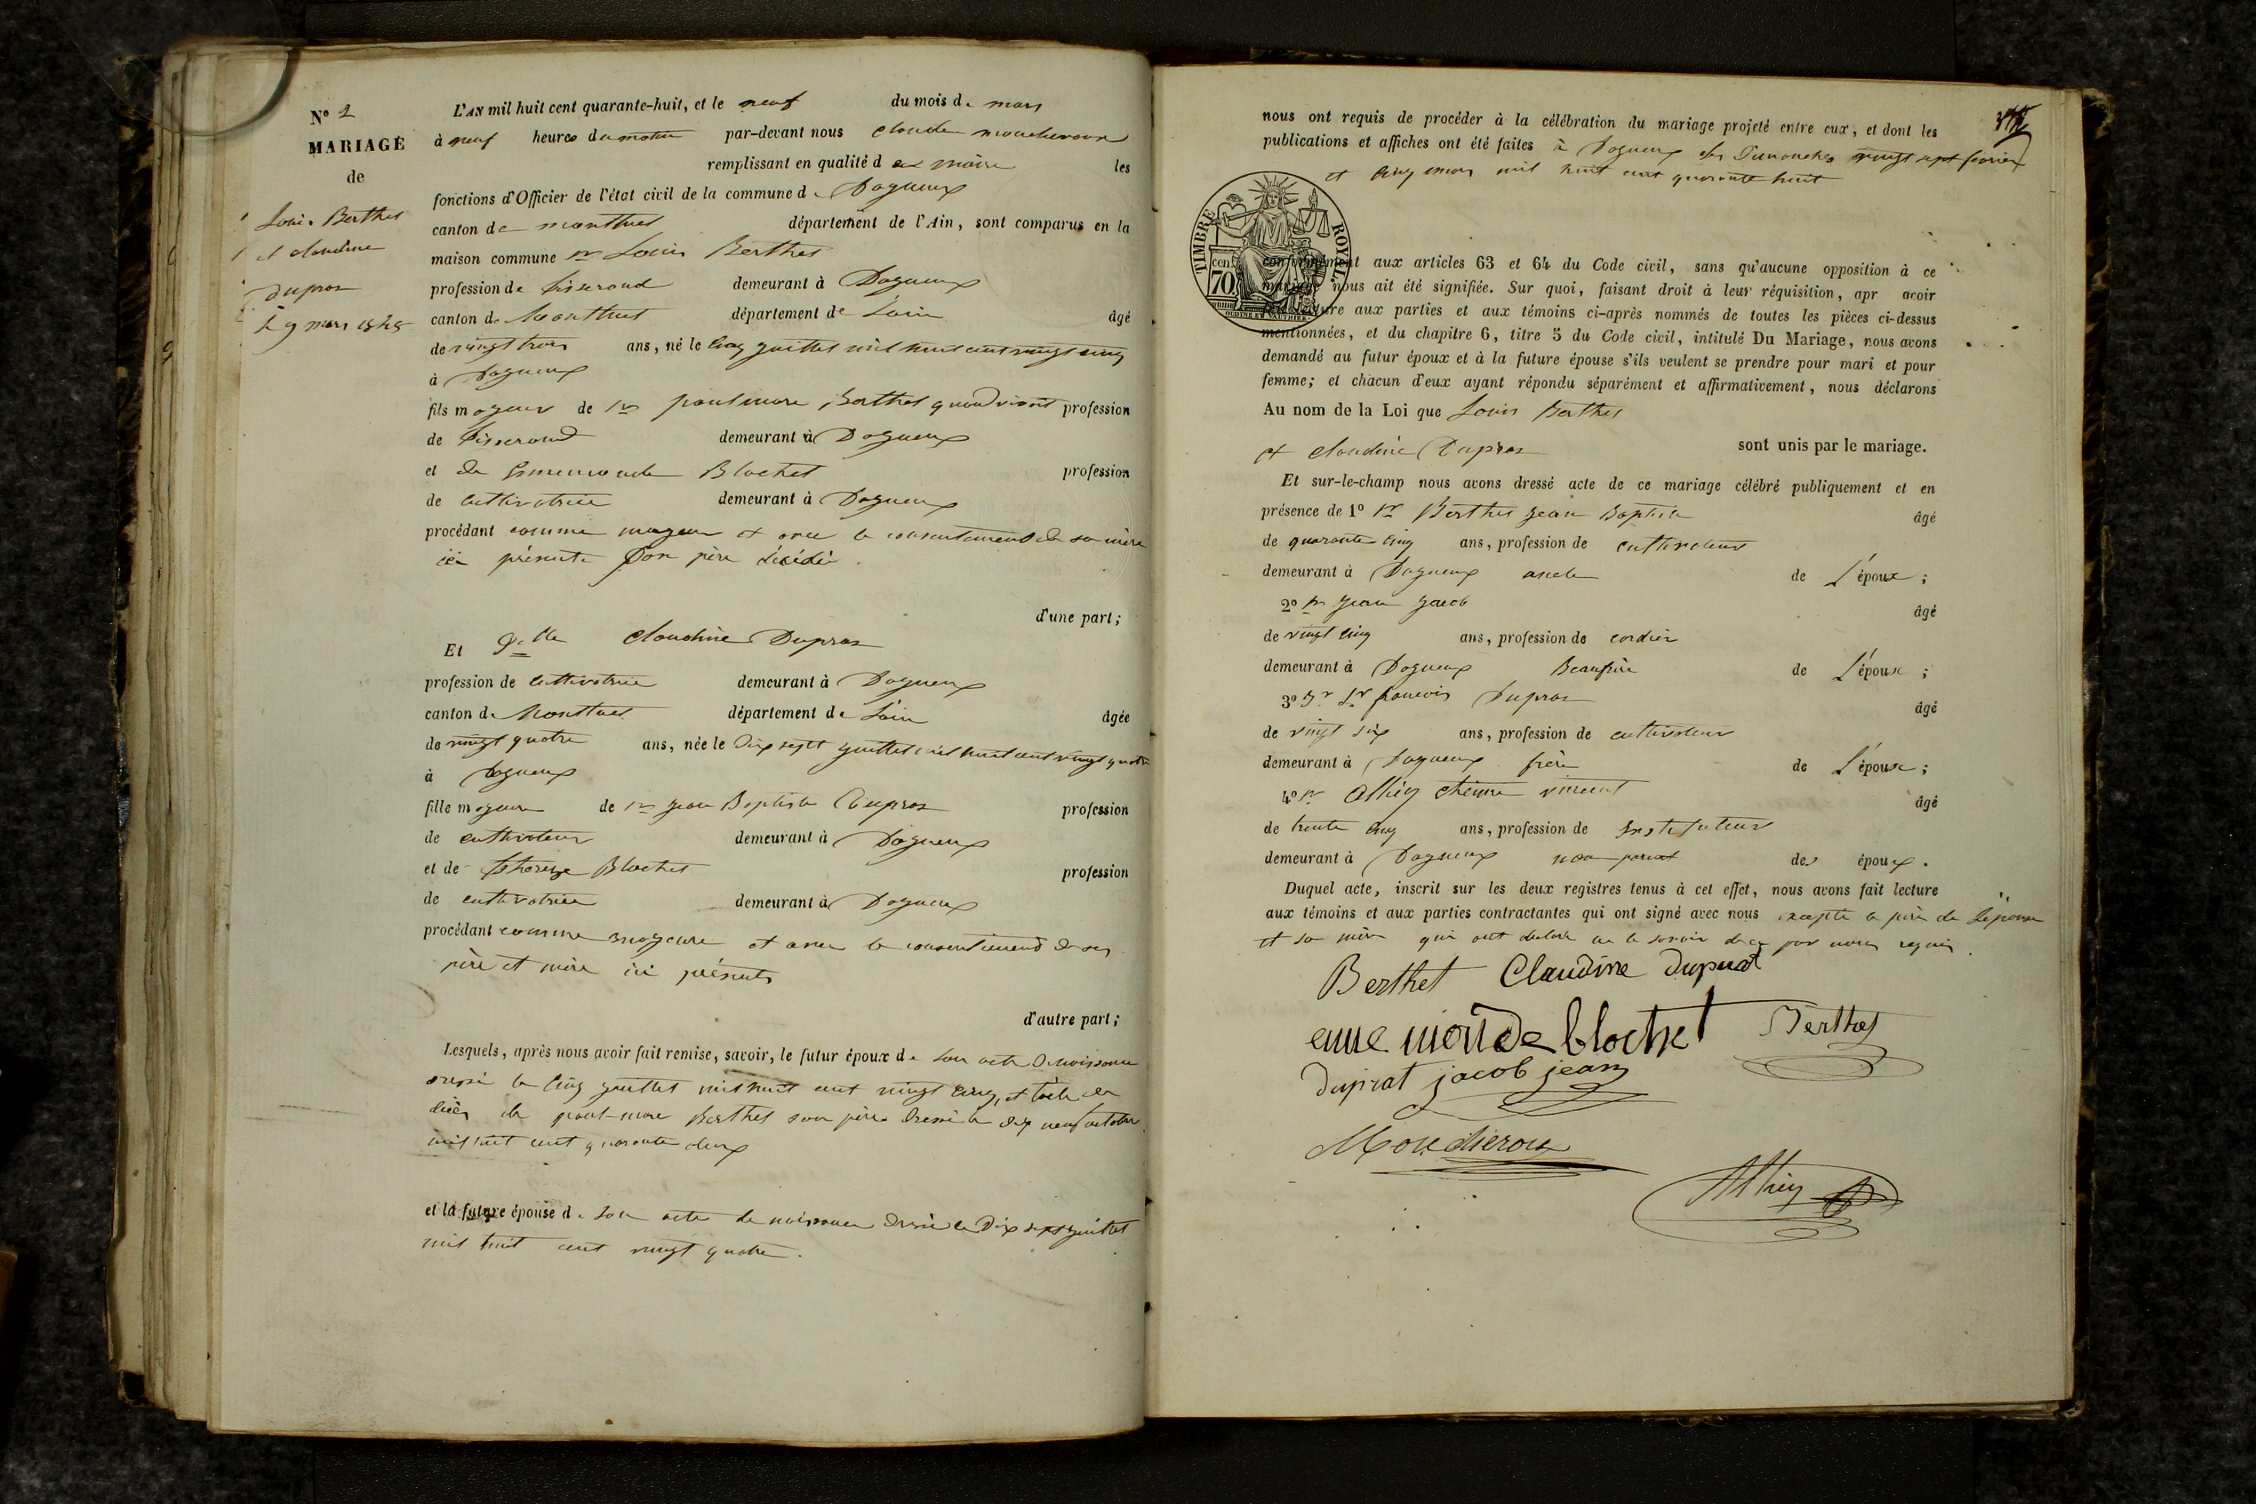 N° 2
MARIAGE
de
Louis Berthet
et claudine
Dupras
le 9 mars 1848
L'AN mil huit cent quarante-huit, et le neuf du mois de mars
à neuf heures du matin par-devant nous claude moucheroux
remplissant en qualité de maire les
fonctions d'Officier de l'état civil de la commune de Dagneux
canton de montluel département de l'Ain, sont comparus en la
maison commune sr Louis Berthet
profession de tisserand demeurant à Dagneux
canton de Montluel département de L'ain âgé
de vingt trois ans, né le cinq juillet mil huit cent vingt cinq
à Dagneux
fils majeur de sr paul marc Berthet quand vivait profession
de tisserand demeurant à Dagneux
et de Ennemonde Blochet profession
de cultivatrice demeurant à Dagneux
procédant comme majeur et avec le consentement de sa mère
ici présente son père décédé.
d'une part;
Et Delle Claudine Dupras
profession de cultivatrice demeurant à Dagneux
canton de Montluel département de L'ain âgée
de vingt quatre ans, née le dix sept juillet mil huit cent vingt quatre
à Dagneux
fille majeure de sr jean Baptiste Dupras profession
de cultivateur demeurant à Dagneux
et de thereze Blochet profession
de cultivatrice demeurant à Dagneux
procédant comme majeure et avec le consentement de ses
père et mère ici présents
d'autre part;
Lesquels, après nous avoir fait remise, savoir, le futur époux de son acte de naissance
dressé le cinq juillet mil huit cent vingt cinq, et l'acte de
décès de paul-marc Berthet son père dressé le dix neuf octobre
mil huit cent quarante deux
et la future épouse de son acte de naissance dressé le dix sept juillet
mil huit cent vingt quatre.
nous ont requis de procéder à la célébration du mariage projeté entre eux, et dont les
publications et affiches ont été faites à Dagneux les Dimanches vingt sept février
et cinq mars mil huit cent quarante huit
TIMBRE ROYAL
70 cen
conformément aux articles 63 et 64 du Code civil, sans qu'aucune opposition à ce
mariage nous ait été signifiée. Sur quoi, faisant droit à leur réquisition, apr avoir
lecture aux parties et aux témoins ci-après nommés de toutes les pièces ci-dessus
mentionnées, et du chapitre 6, titre 5 du Code civil, intitulé Du Mariage, nous avons
demandé au futur époux et à la future épouse s'ils veulent se prendre pour mari et pour
femme; et chacun d'eux ayant répondu séparément et affirmativement, nous déclarons
Au nom de la Loi que Louis Berthet
et claudine Dupras sont unis par le mariage.
Et sur-le-champ nous avons dressé acte de ce mariage célébré publiquement et en
présence de 1° sr Berthet jean Baptiste âgé
de quarante cinq ans, profession de cultivateur
demeurant à Dagneux oncle de L'époux;
2° sr jean jacob âgé
de vingt cinq ans, profession de cordier
demeurant à Dagneux Beaufrère de L'époux;
3° sr françois Dupras âgé
de vingt six ans, profession de cultivateur
demeurant à Dagneux frère de L'épouse;
4° sr Athiey étienne vincent âgé
de trente cinq ans, profession de instituteur
demeurant à Dagneux non parent des époux.
Duquel acte, inscrit sur les deux registres tenus à cet effet, nous avons fait lecture
aux témoins et aux parties contractantes qui ont signé avec nous excepté le père de L'épouse
et sa mère qui ont déclaré ne le savoir de ce par nous requis.
Berthet Claudine duprat
enne monde blochet Berthet
Duprat jacob jean
Moucheroux
Athiey